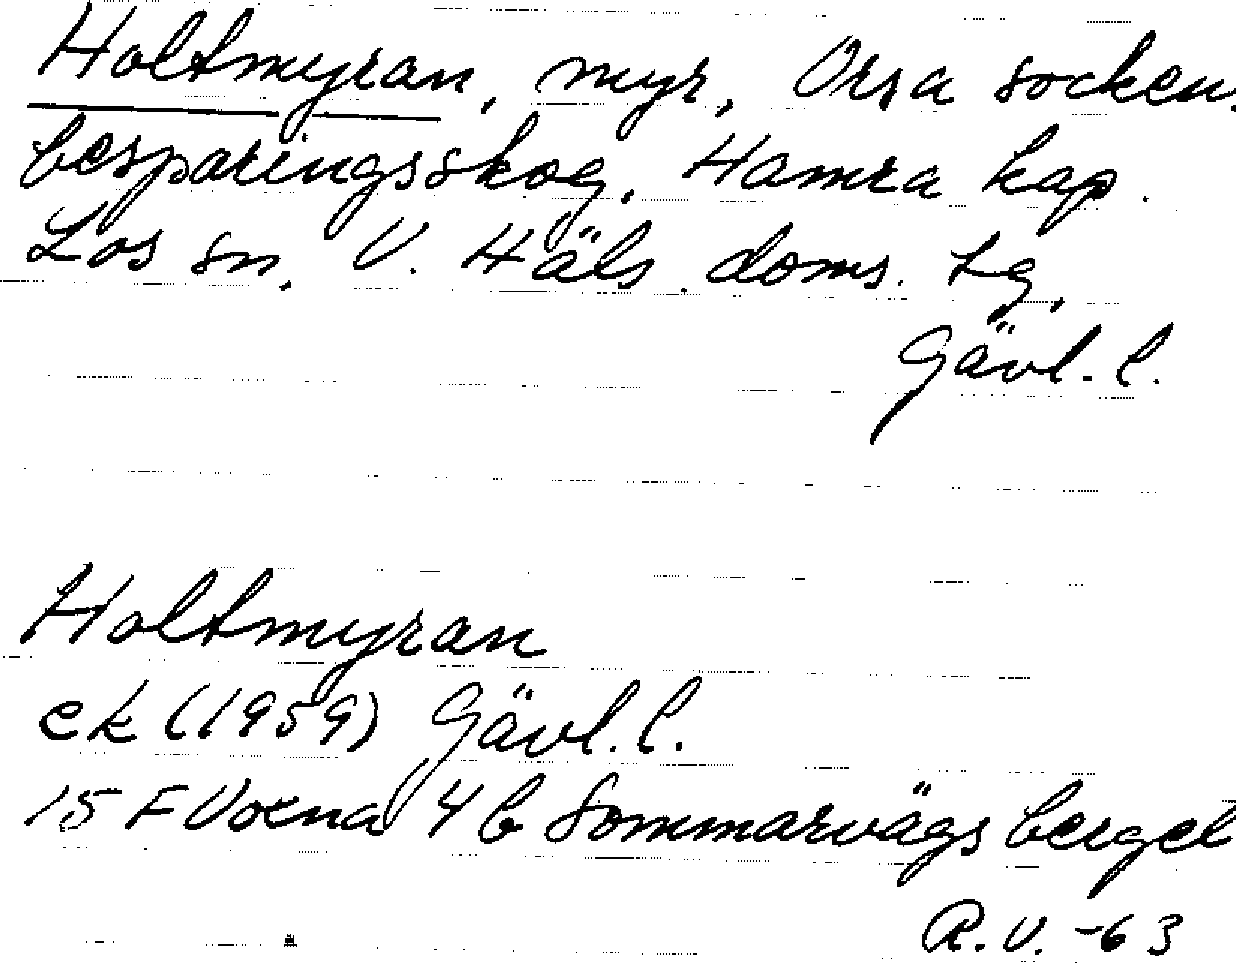 Holtmyran, myr, Orsa socken.
besparingsskog, Hamra kap.
Los sn, V. Häls. doms. tg,
Gävl. l.
Holtmyran
ek (1959) Gävl. l.
15 F Voxna 4 b Sommarvägsberget
R.V. -63